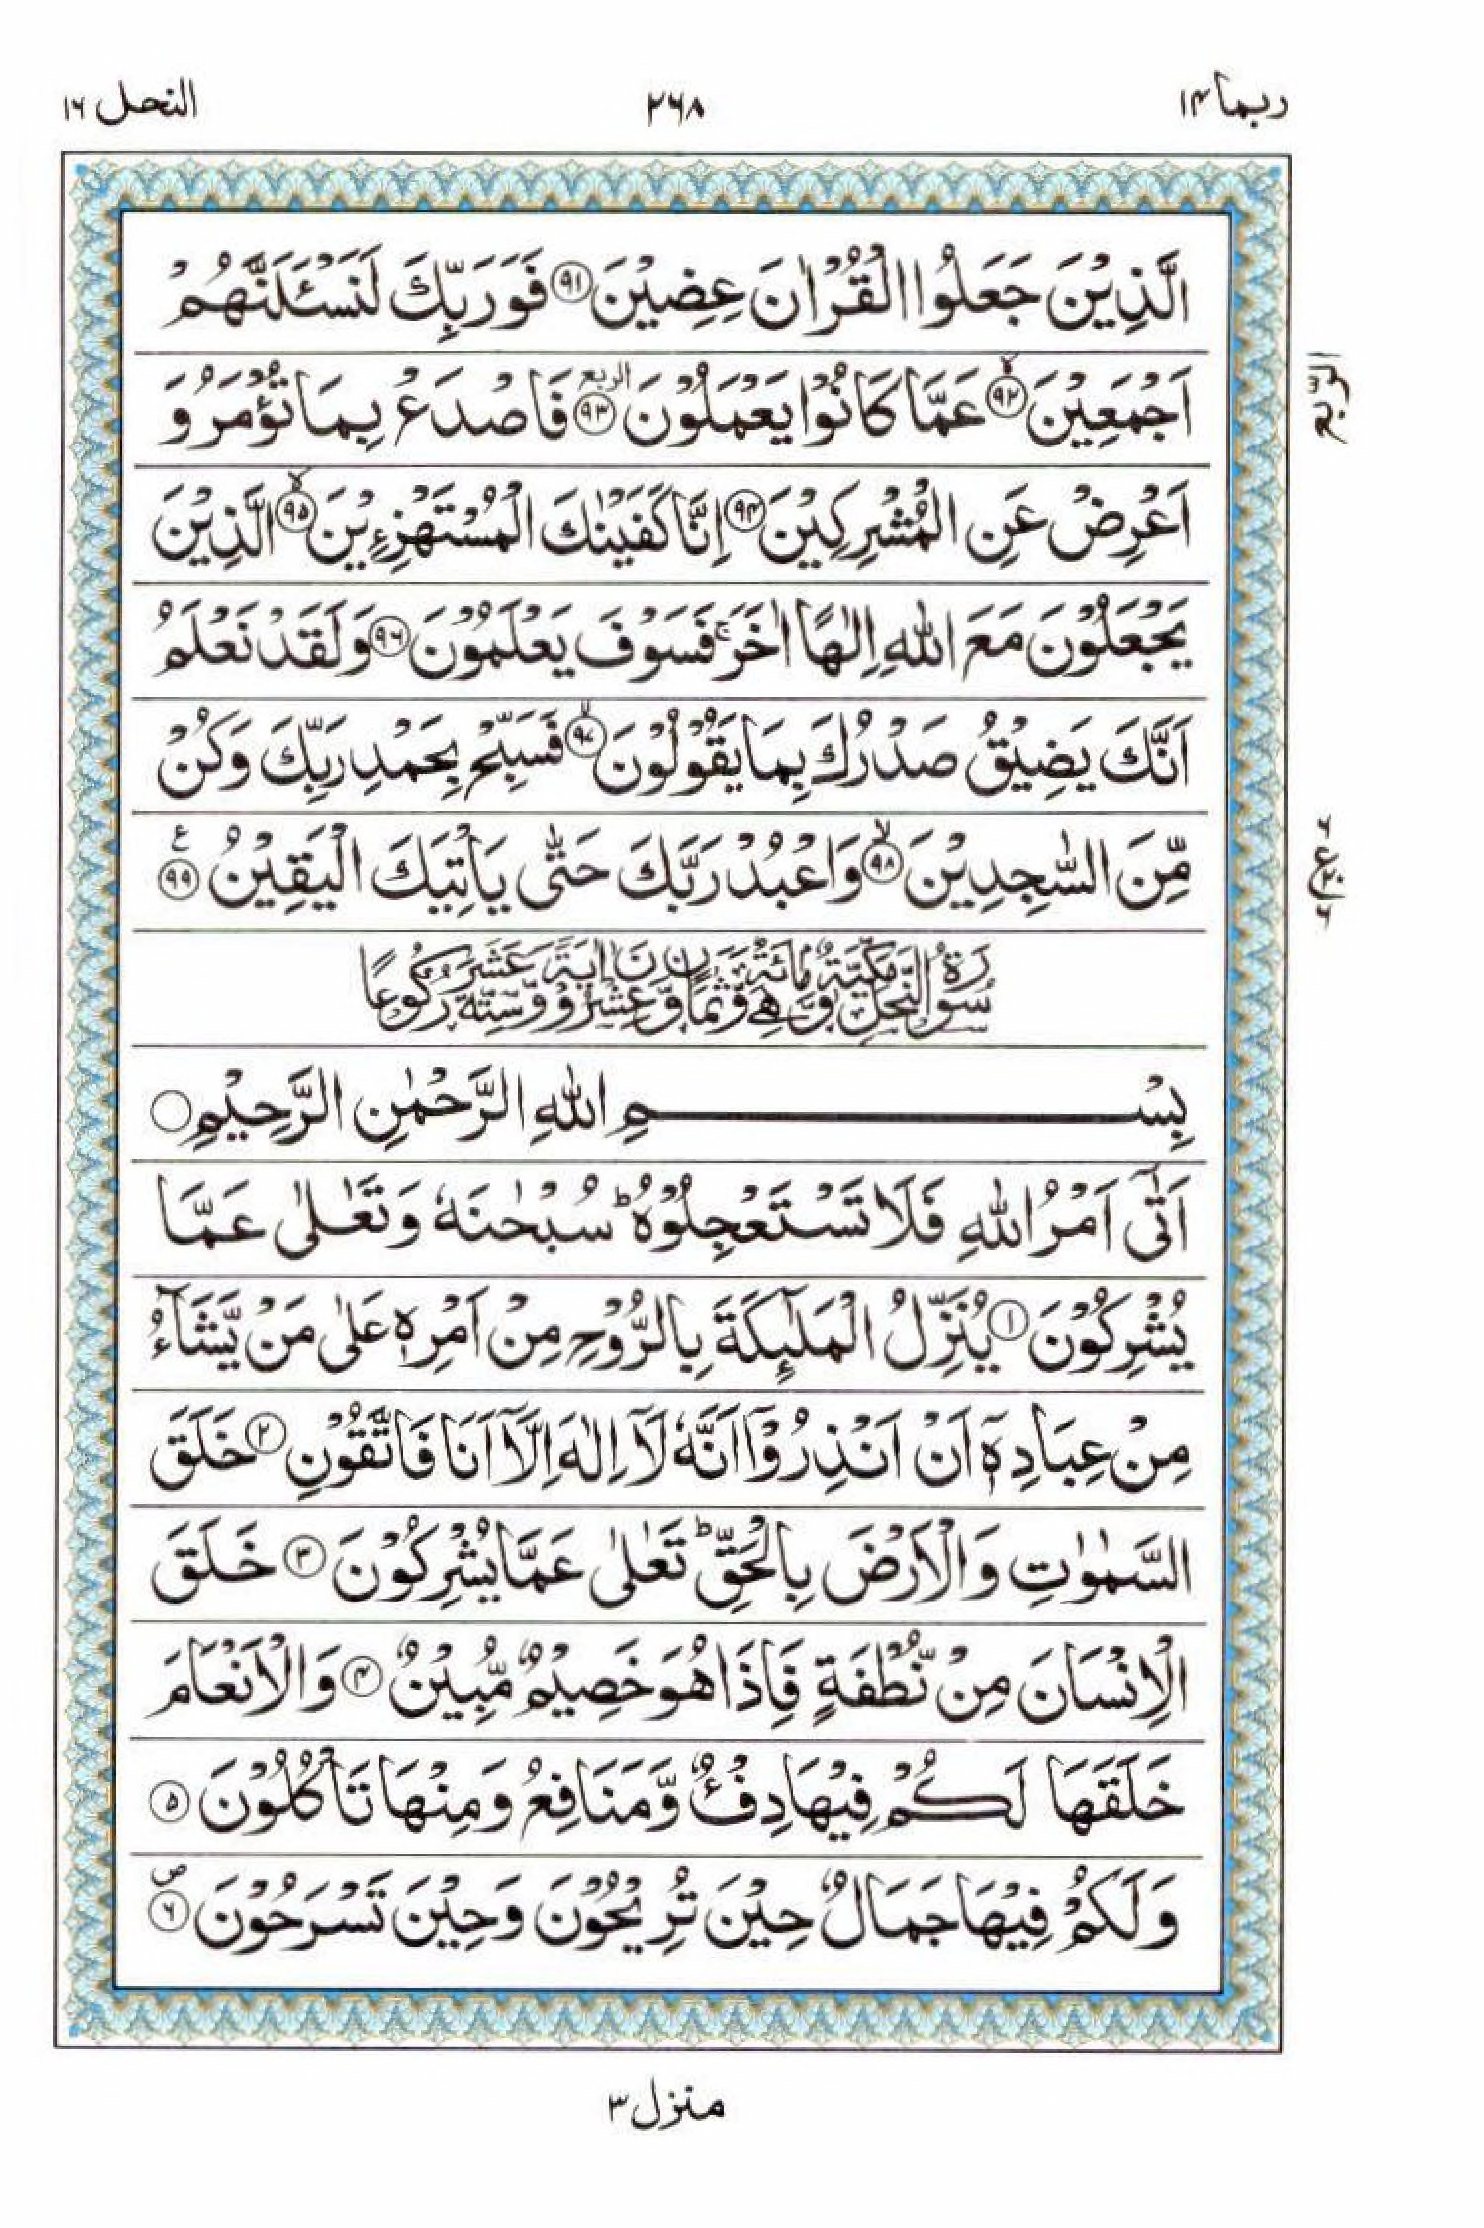 ربما ١٤ ٢٦٨ النحل ١٦
الَّذِيْنَ جَعَلُوا الْقُرْاٰنَ عِضِيْنَ ﴿٩١﴾ فَوَرَبِّكَ لَنَسْـَٔلَنَّهُمْ
اَجْمَعِيْنَ ۙ﴿٩٢﴾ عَمَّا كَانُوْا يَعْمَلُوْنَ ﴿٩٣﴾ الربع فَاصْدَعْ بِمَا تُؤْمَرُ وَ
الربع
اَعْرِضْ عَنِ الْمُشْرِكِيْنَ ﴿٩٤﴾ اِنَّا كَفَيْنٰكَ الْمُسْتَهْزِءِيْنَ ۙ﴿٩٥﴾ الَّذِيْنَ
يَجْعَلُوْنَ مَعَ اللّٰهِ اِلٰهًا اٰخَرَ ۚ فَسَوْفَ يَعْلَمُوْنَ ﴿٩٦﴾ وَلَقَدْ نَعْلَمُ
اَنَّكَ يَضِيْقُ صَدْرُكَ بِمَا يَقُوْلُوْنَ ۙ﴿٩٧﴾ فَسَبِّحْ بِحَمْدِ رَبِّكَ وَكُنْ
مِّنَ السّٰجِدِيْنَ ۙ﴿٩٨﴾ وَاعْبُدْ رَبَّكَ حَتّٰى يَاْتِيَكَ الْيَقِيْنُ ﴿٩٩﴾ ع
سُوْرَةُ النَّحْلِ مَكِّيَّةٌ وَّهِيَ مِائَةٌ وَّثَمَانٍ وَّعِشْرُوْنَ اٰيَةً وَّسِتَّةَ عَشَرَ رُكُوْعًا
بِسْمِ اللّٰهِ الرَّحْمٰنِ الرَّحِيْمِ
اَتٰٓى اَمْرُ اللّٰهِ فَلَا تَسْتَعْجِلُوْهُ ؕ سُبْحٰنَهٗ وَتَعٰلٰى عَمَّا
يُشْرِكُوْنَ ﴿١﴾ يُنَزِّلُ الْمَلٰٓئِكَةَ بِالرُّوْحِ مِنْ اَمْرِهٖ عَلٰى مَنْ يَّشَآءُ
مِنْ عِبَادِهٖٓ اَنْ اَنْذِرُوْٓا اَنَّهٗ لَآ اِلٰهَ اِلَّآ اَنَا فَاتَّقُوْنِ ﴿٢﴾ خَلَقَ
السَّمٰوٰتِ وَالْاَرْضَ بِالْحَقِّ ؕ تَعٰلٰى عَمَّا يُشْرِكُوْنَ ﴿٣﴾ خَلَقَ
الْاِنْسَانَ مِنْ نُّطْفَةٍ فَاِذَا هُوَ خَصِيْمٌ مُّبِيْنٌ ﴿٤﴾ وَالْاَنْعَامَ
خَلَقَهَا لَكُمْ فِيْهَا دِفْءٌ وَّمَنَافِعُ وَمِنْهَا تَاْكُلُوْنَ ﴿٥﴾
وَلَكُمْ فِيْهَا جَمَالٌ حِيْنَ تُرِيْحُوْنَ وَحِيْنَ تَسْرَحُوْنَ ﴿٦﴾ ص
منزل ٣